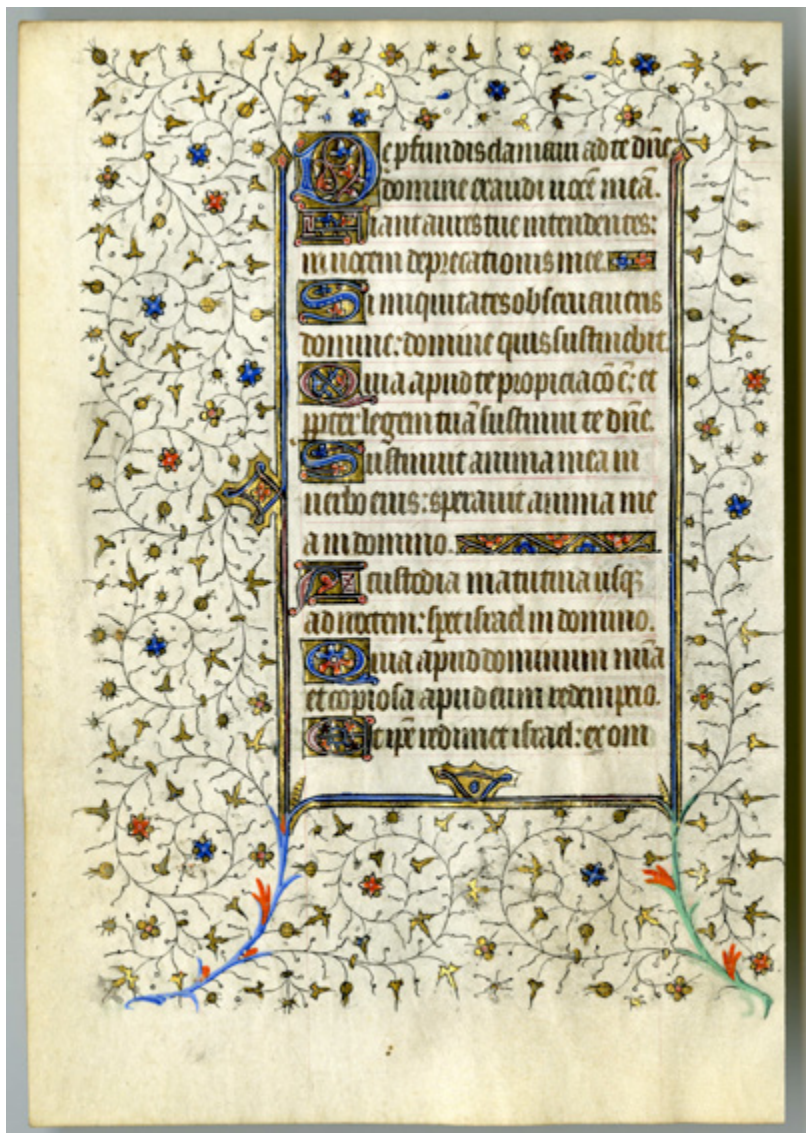 De pfundis clamaui ad te dn̄e
domine exaudi uocē meā.
Fiant aures tue intendentes:
in uocem deprecationis mee.
Si iniquitates obseruaueris
domine: domine quis sustinebit
Quia apud te propiciacō ē: et
ppter legem tuā sustinui te dn̄e.
Sustinuit anima mea in
uerbo eius: sperauit anima me
a in domino.
A custodia matutina usq̄
ad noctem: speret israel in domino.
Quia apud dominum mīa
et copiosa apud eum redempcio.
Et ip̄e redimet israel: ex om